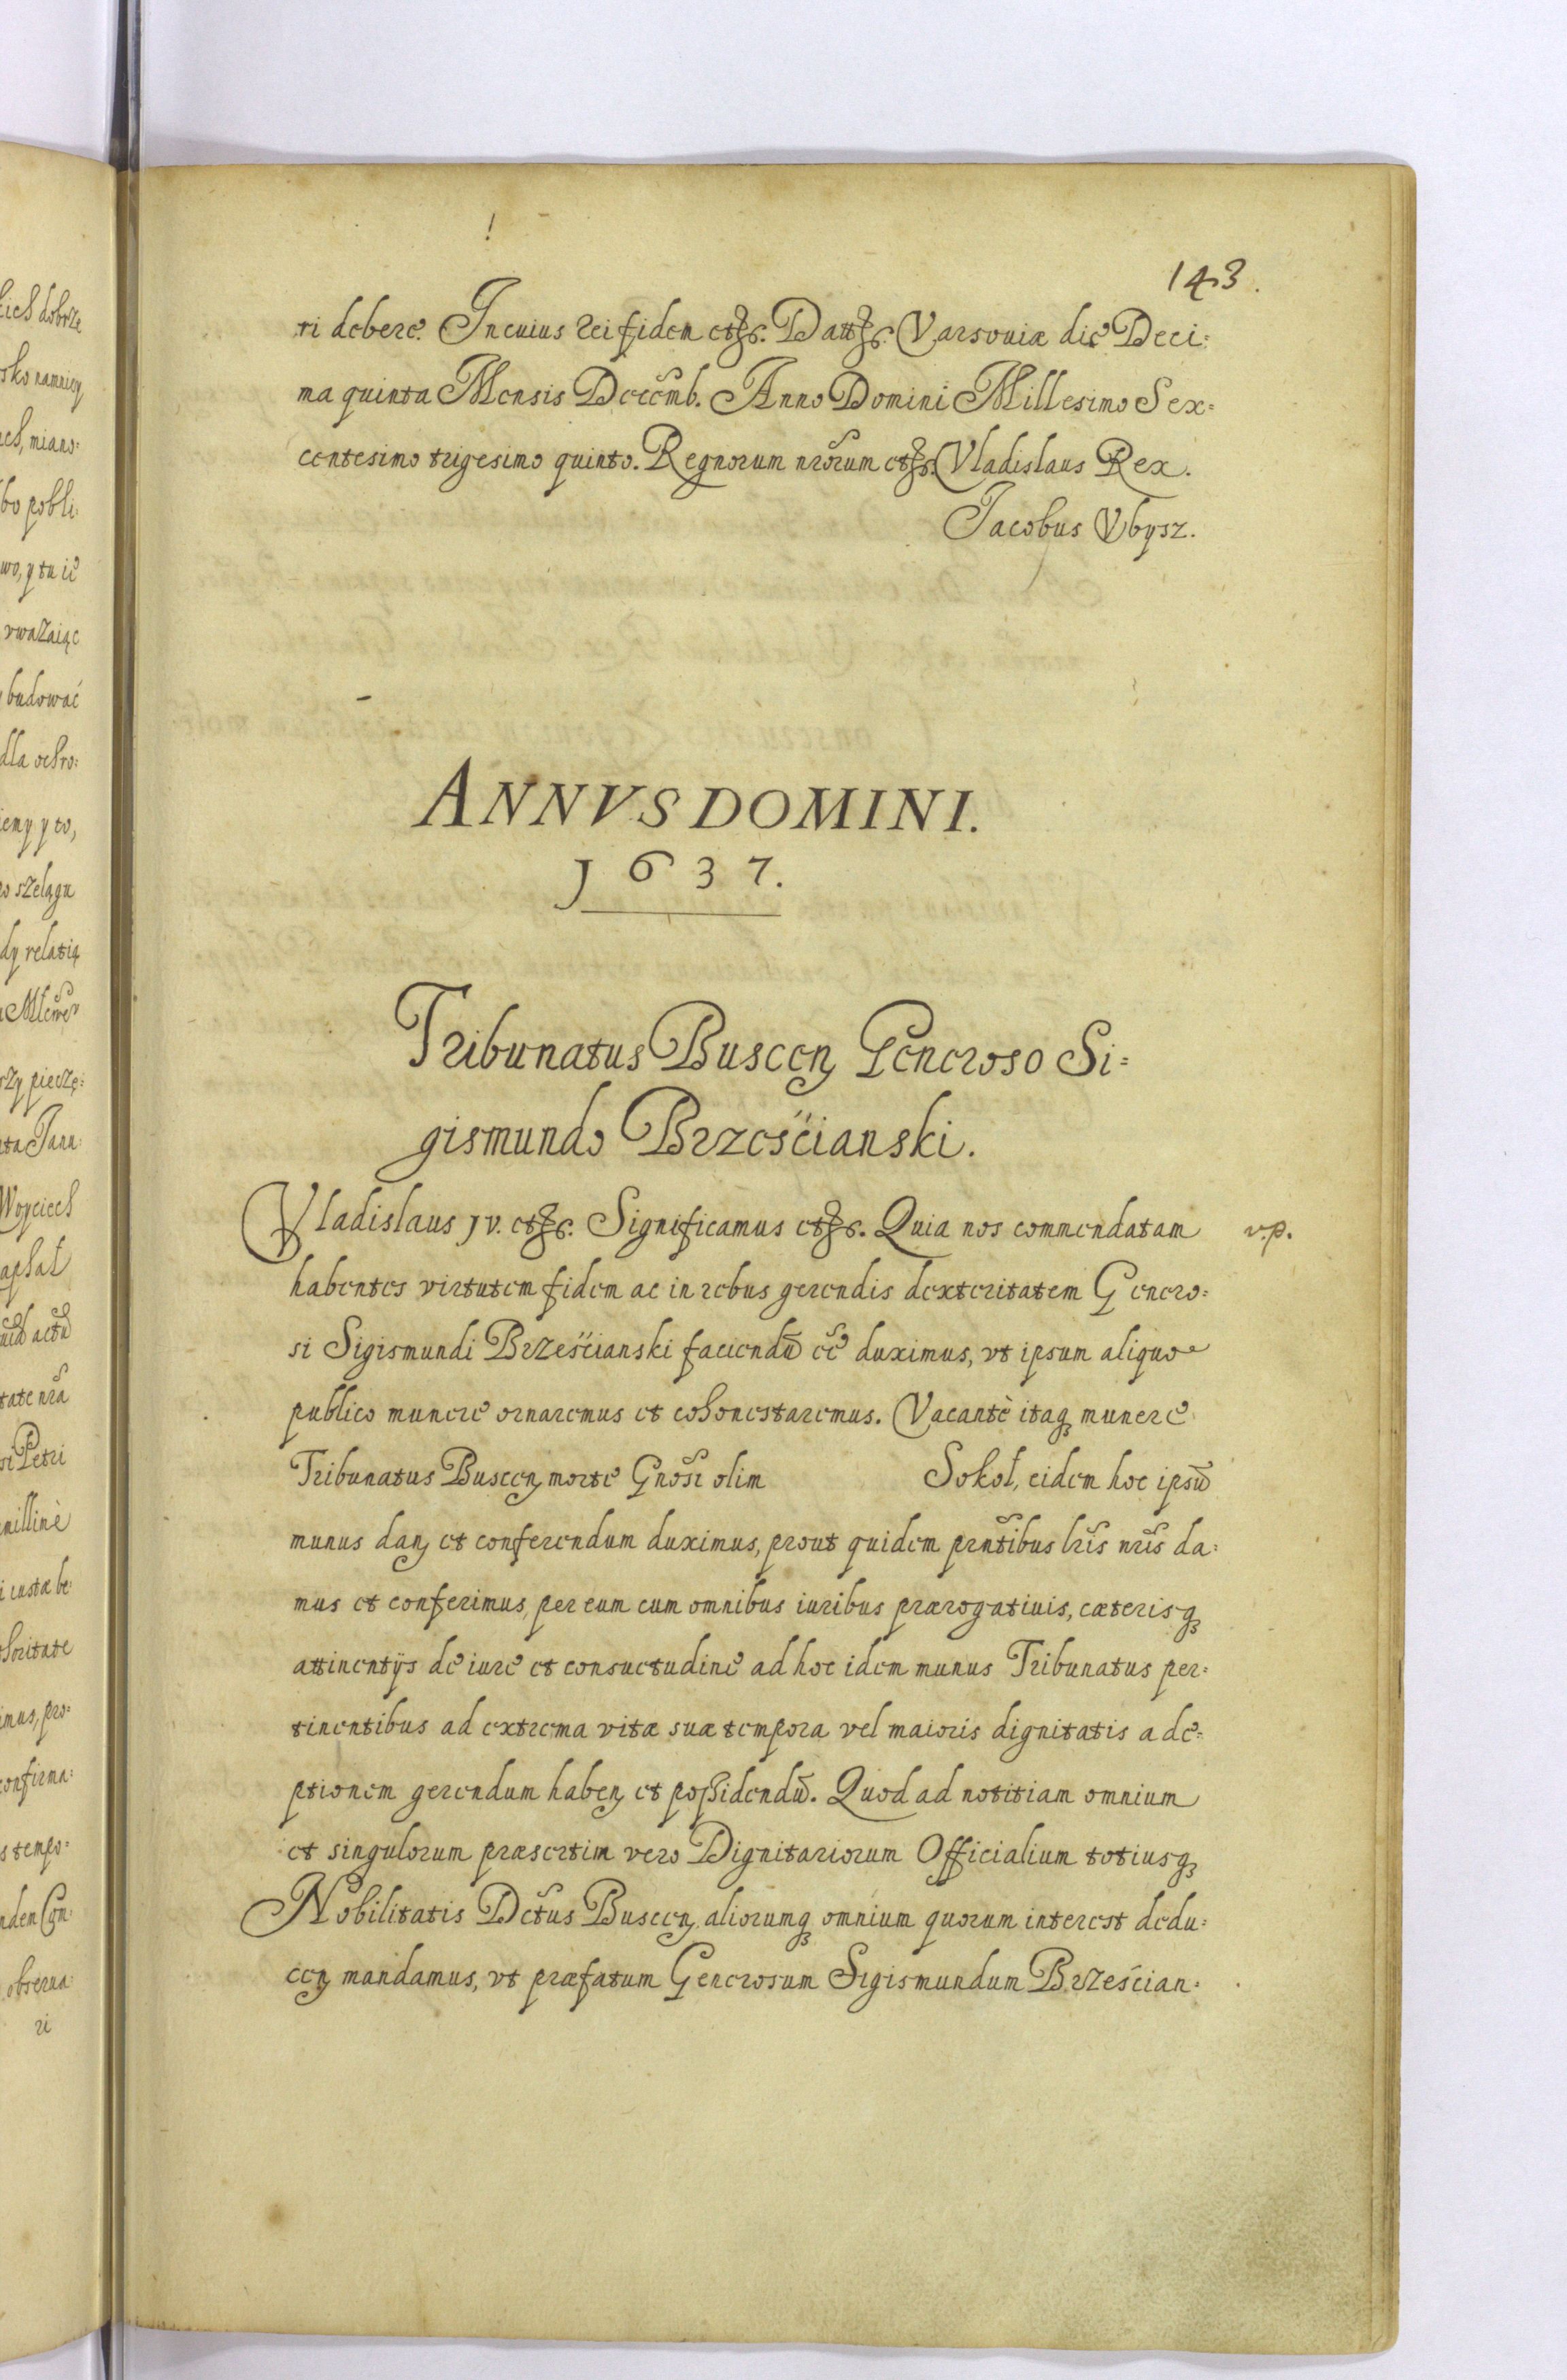 143.
ri debere. In cuius rei fidem etc. Datt. Varsouiæ die Deci:
ma quinta Mensis Decemb. Anno Domini Millesimo Sex=
centesimo trigesimo quinto. Regnorum nrorum etc. Vladislaus Rex.
Jacobus Vbysz.
ANNVS DOMINI.
1637.
Tribunatus Buscen Generoso Si=
gismundo Brzesćianski.
Vladislaus IV. etc. Significamus etc. Quia nos commendatam v.p.
habentes virtutem fidem ac in rebus gerendis dexteritatem Genero=
si Sigismundi Brzesćianski faciendũ eē duximus, vt ipsum aliquo
publico munere ornaremus et cohonestaremus. Vacantè itaq munere
Tribunatus Buscen morte Gnosi olim Sokoł, eidem hoc ipsũ
munus dan et conferendum duximus, prout quidem prntibus lris nris da=
mus et conferimus, per eum cum omnibus iuribus prærogatiuis, cæterisq
attinentijs de iure et consuetudine ad hoc idem munus Tribunatus per=
tinentibus ad extrema vitæ suæ tempora vel maioris dignitatis ade=
ptionem gerendum haben et possidendũ. Quod ad notitiam omnium
et singulorum præsertim vero Dignitariorum Officialium totiusq
Nobilitatis Dctus Buscen aliorumq omnium quorum interest dedu=
cen mandamus, vt præfatum Generosum Sigismundum Brzesćian=